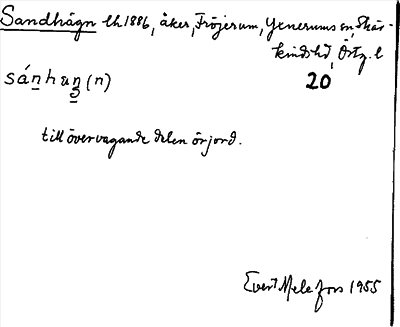 Sandhägn lh 1886, åker, Fröjerum, Yxnerums sn, Skär-
kinds hd, Östg. l
sánhuŋ(n)
20
till övervagande delen örjord.
Evert Melefors 1955